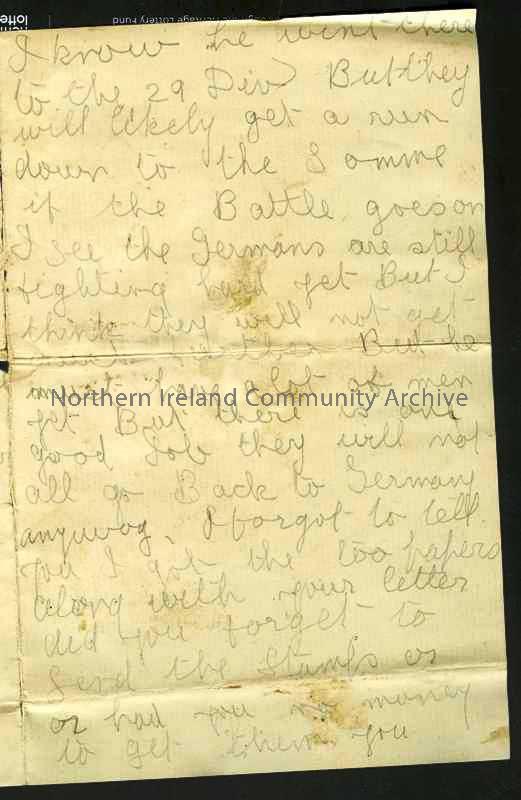 I know he went there
to the 29 Div But they
will likely get a run
down to the Somme
if the Battle goes on
I see the Germans are still
fighting hard yet But I
think they will not get
But he
must have a lot of men
Northern Ireland Community Archive
yet But there is one
good Job they will not
all go Back to Germany
anyway, I forgot to tell
you I got the too papers
along with your letter
did you forget to
send the stamps or
or had you no money
to get them you